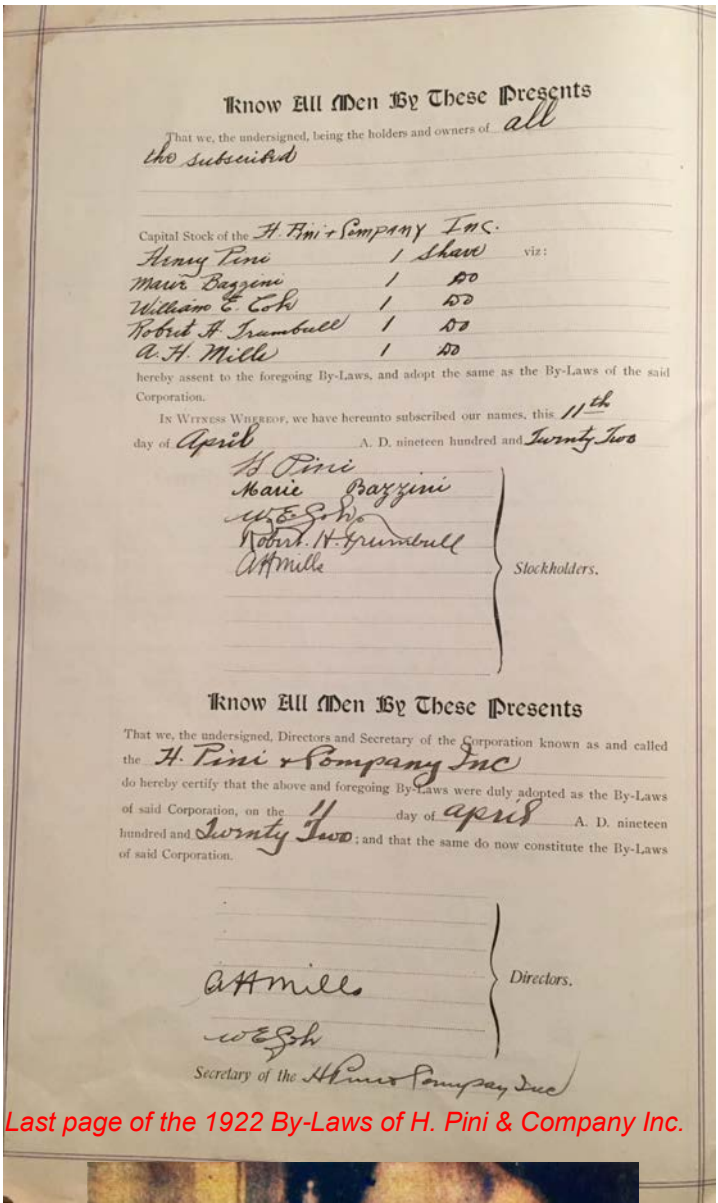 Know All Men By These Presents
That we, the undersigned, being the holders and owners of all
the subscribed
Capital Stock of the H. Pini & Company Inc.
Henry Pini 1 Share viz:
Marie Bazzini 1 Do
William E. 1 Do
Robert H. Trumbull 1 Do
A. H. Mills 1 Do
hereby assent to the foregoing By-Laws, and adopt the same as the By-Laws of the said
Corporation.
In Witness Whereof, we have hereunto subscribed our names, this 11th
day of April A. D. nineteen hundred and Twenty Two
H Pini
Marie Bazzini
W E
Robert. H. Trumbull
A H Mills
Stockholders.
Know All Men By These Presents
That we, the undersigned, Directors and Secretary of the Corporation known as and called
the H. Pini & Company Inc
do hereby certify that the above and foregoing By-Laws were duly adopted as the By-Laws
of said Corporation, on the 11 day of April A. D. nineteen
hundred and Twenty Two; and that the same do now constitute the By-Laws
of said Corporation.
A H Mills
Directors.
W E
Secretary of the H Pini & Compay Inc
Last page of the 1922 By-Laws of H. Pini & Company Inc.